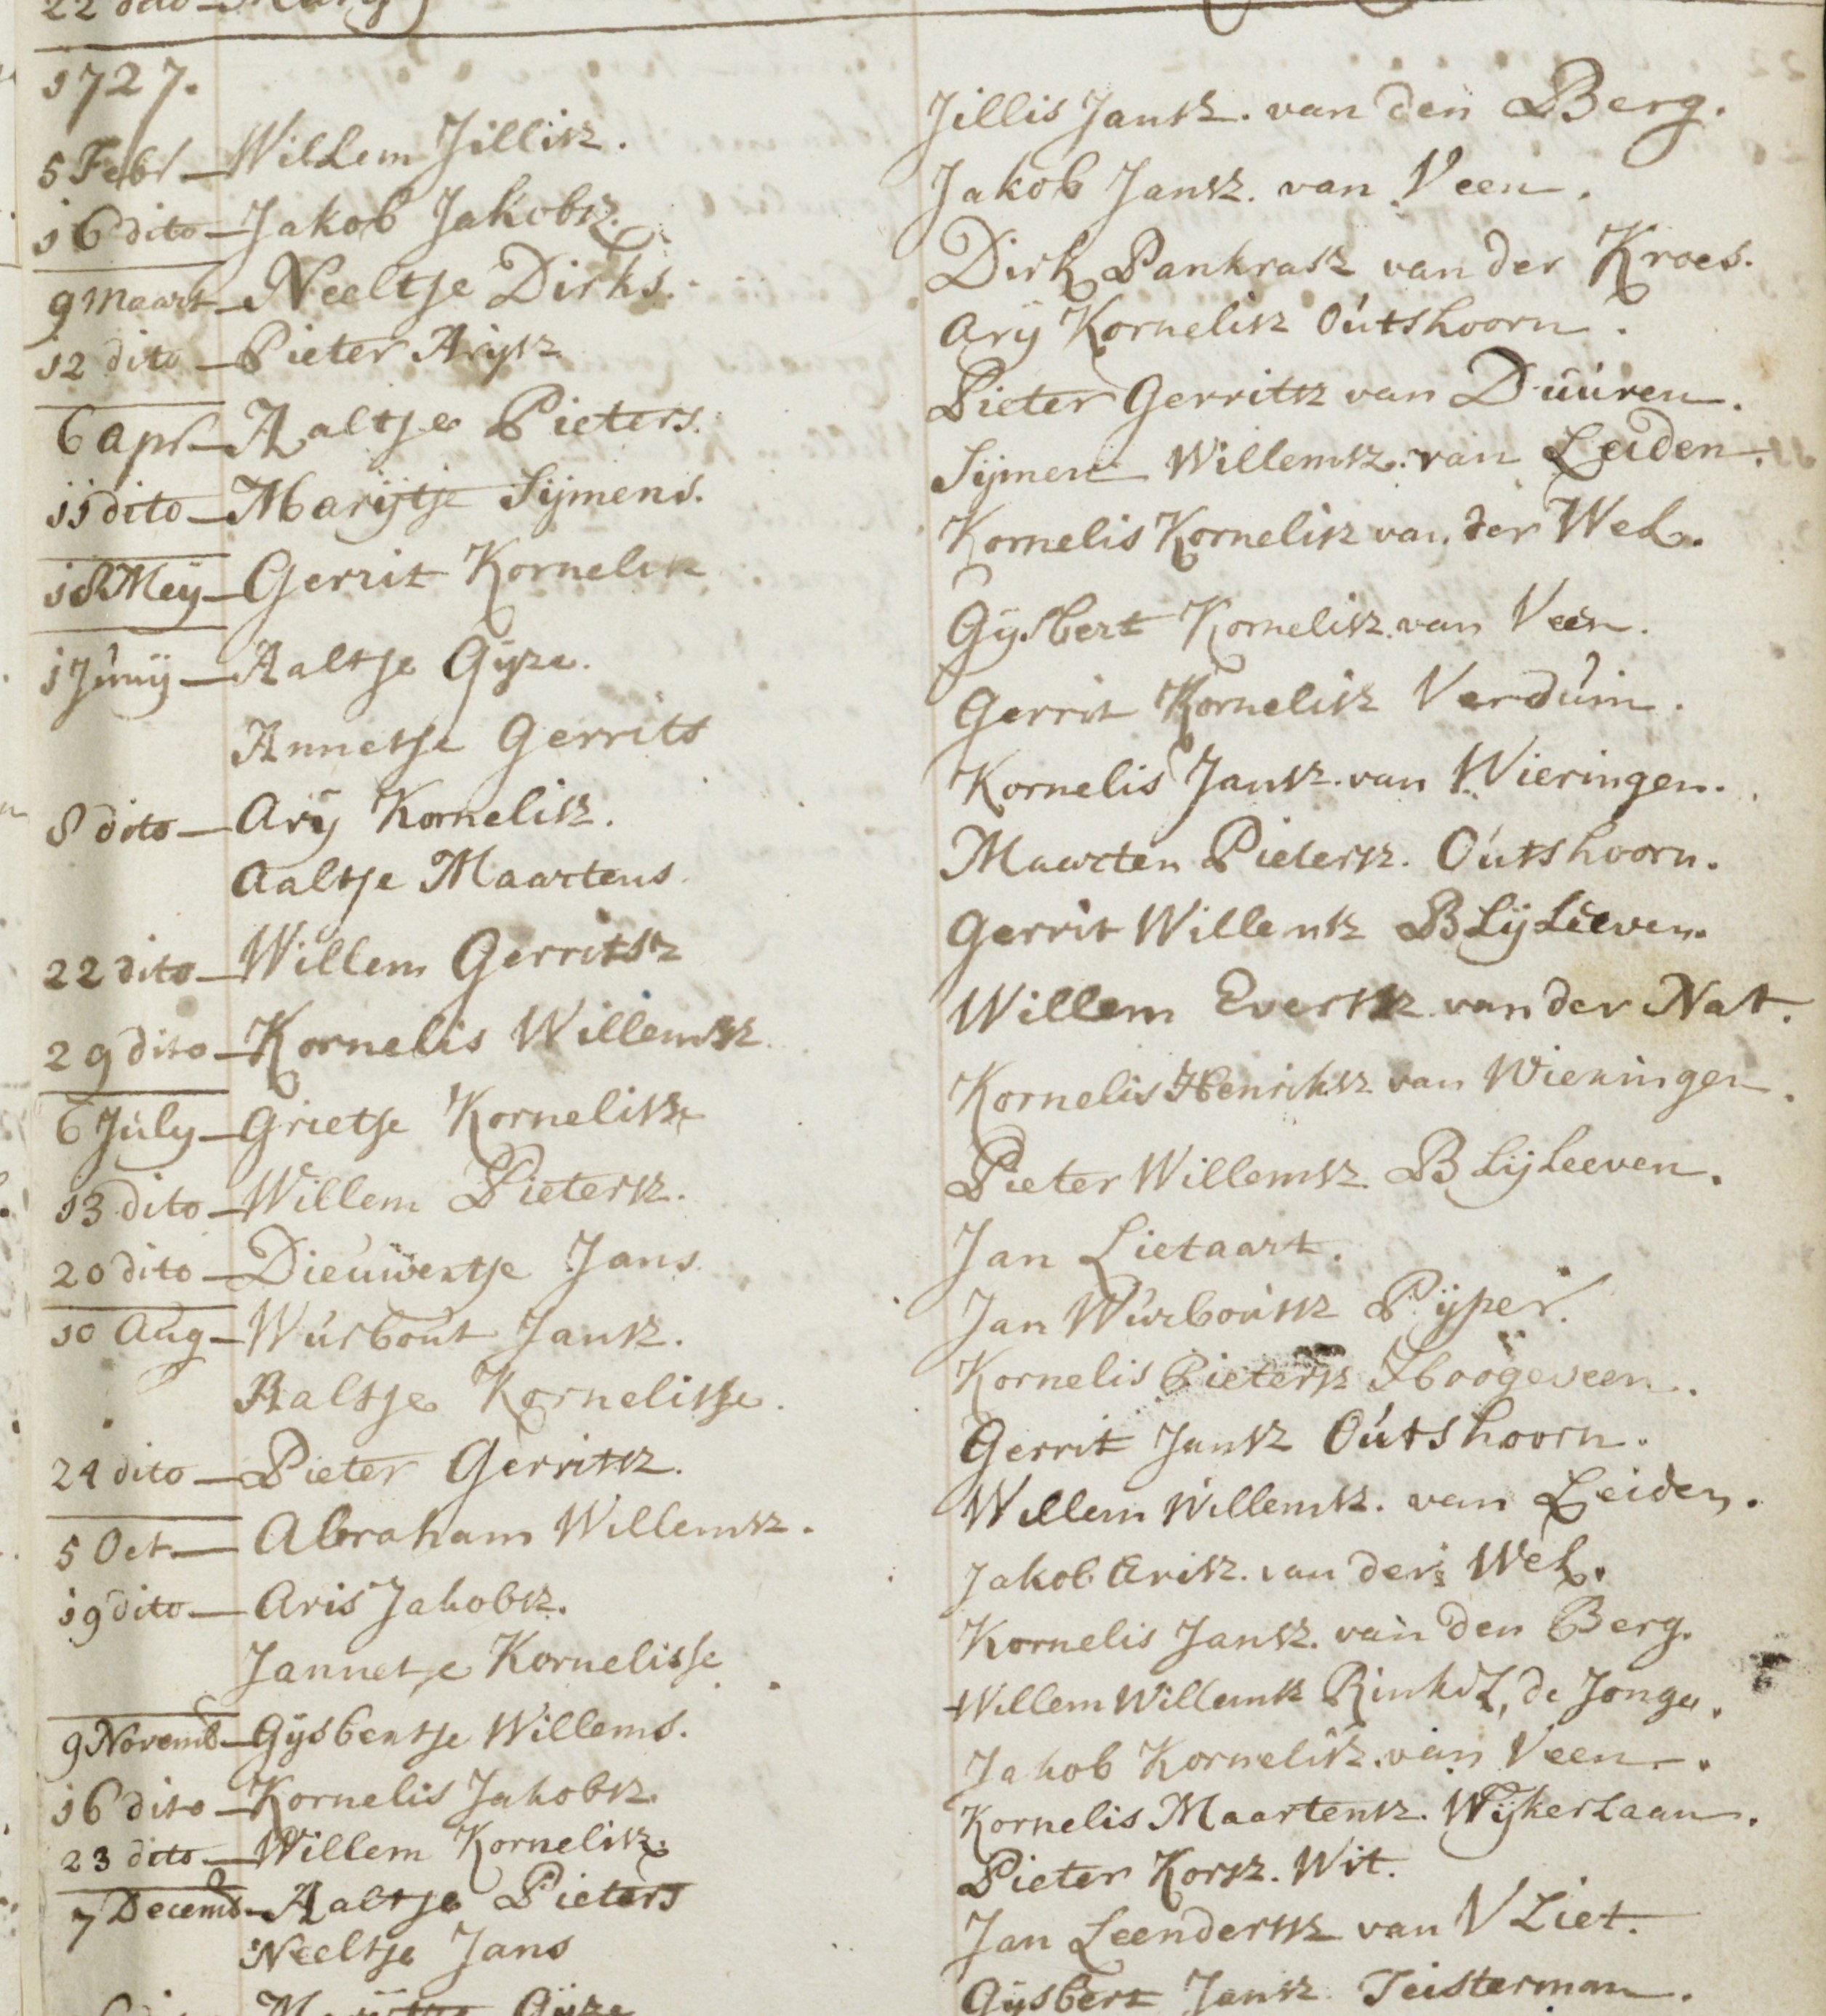 22 dito
1727.
5 Feb. — Willem Jillisz. Jillis Jansz. van den Berg.
16 dito — Jakob Jakobsz. Jakob Jansz. van Veen.
9 Maart — Neeltje Dirks. Dirk Pankrasz van der Kroes.
12 dito — Pieter Arijsz Arÿ Kornelisz Oútshoorn.
6 Apr. — Aaltje Pieters. Pieter Gerritsz van Duúren.
11 dito — Marijtje Sijmens. Sijmen Willemsz. van Leiden.
18 Meÿ — Gerrit Kornelisz Kornelis Kornelisz van der Wel.
1 Junÿ — Aaltje Gÿze. Gÿsbert Kornelisz. van Veen.
Annetje Gerrits Gerrit Kornelisz Verdúin.
8 dito — Arÿ Kornelisz. Kornelis Jansz. van Wieringen.
Aaltje Maartens. Maarten Pietersz. Oútshoorn.
22 dito — Willem Gerritsz Gerrit Willemsz Blÿleeven.
29 dito — Kornelis Willemsz Willem Evertsz van der Nat.
6 Júlÿ — Grietje Kornelisse Kornelis Henriksz van Wieringen.
13 dito — Willem Pietersz. Pieter Willemsz Blijleeven.
20 dito — Dieuwertje Jans Jan Lietaart.
10 Aug — Wúrbout Jansz. Jan Wúrboutsz Pÿper.
Aaltje Kornelisse. Kornelis Pietersz Hoogeveen.
24 dito — Pieter Gerritsz. Gerrit Jansz Oútshoorn.
5 Oct. — Abraham Willemsz. Willem Willemsz. van Leiden.
19 dito — Aris Jakobsz. Jakob Arisz. van der Wel.
Jannetje Kornelisse Kornelis Jansz. van den Berg.
9 Novemb — Gÿsbertje Willems. Willem Willemsz de Jonge.
16 dito — Kornelis Jakobsz. Jakob Kornelisz. van Veen.
23 dito — Willem Kornelisz. Kornelis Maartensz. Wÿkerlaan.
7 Decemb — Aaltje Pieters Pieter Korsz. Wit.
Neeltje Jans Jan Leendertsz van Vliet.
Gÿze Gÿsbert Jansz. Teisterman.